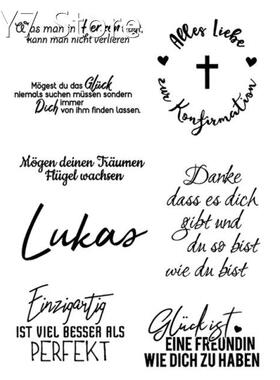 YZ Store
Was man im Herzen trägt,
kann man nicht verlieren
Mögest du das Glück
niemals suchen müssen sondern
immer
Dich von ihm finden lassen.
Mögen deinen Träumen
Flügel wachsen
Lukas
Einzigartig
IST VIEL BESSER ALS
PERFEKT
Alles Liebe
zur Konfirmation
Danke
dass es dich
gibt und
du so bist
wie du bist
Glück ist
EINE FREUNDIN
WIE DICH ZU HABEN